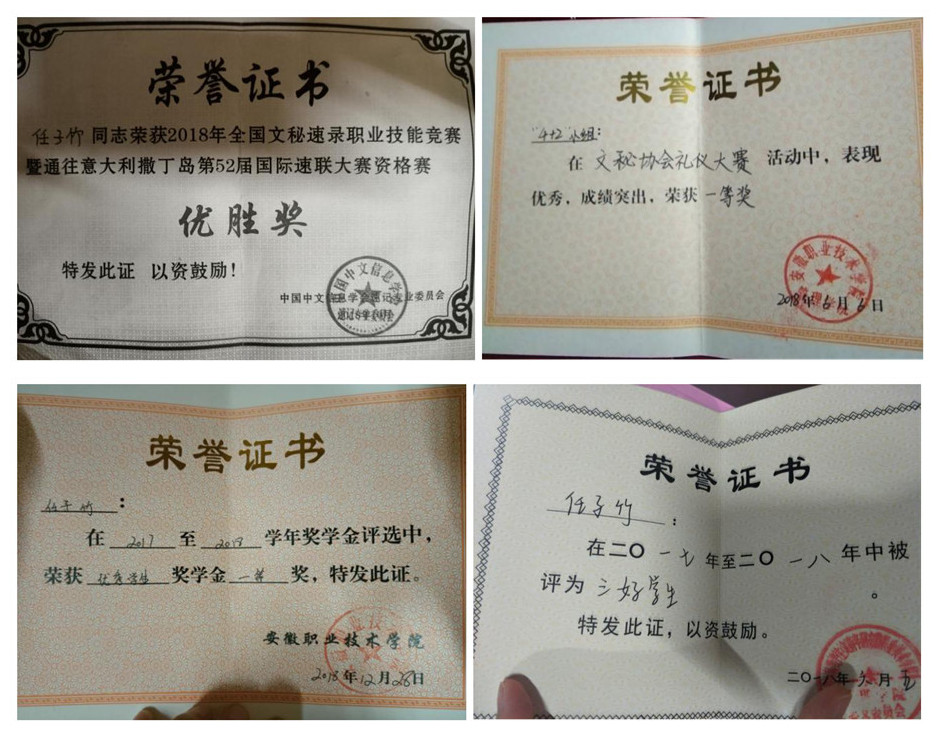 荣誉证书
任子竹 同志荣获2018年全国文秘速录职业技能竞赛
暨通往意大利撒丁岛第52届国际速联大赛资格赛
优胜奖
特发此证 以资鼓励!
中国中文信息学会速记专业委员会
荣誉证书
"4+2"小组:
在 文秘协会礼仪大赛 活动中,表现
优秀,成绩突出,荣获 一等奖
安徽职业技术学院
2018年6月6日
荣誉证书
任子竹:
在 2017 至 2018 学年奖学金评选中,
荣获 优秀学生 奖学金 一等 奖,特发此证。
安徽职业技术学院
2018年12月28日
荣誉证书
任子竹:
在二〇一七年至二〇一八年中被
评为 三好学生 。
特发此证,以资鼓励。
二〇一八年 月